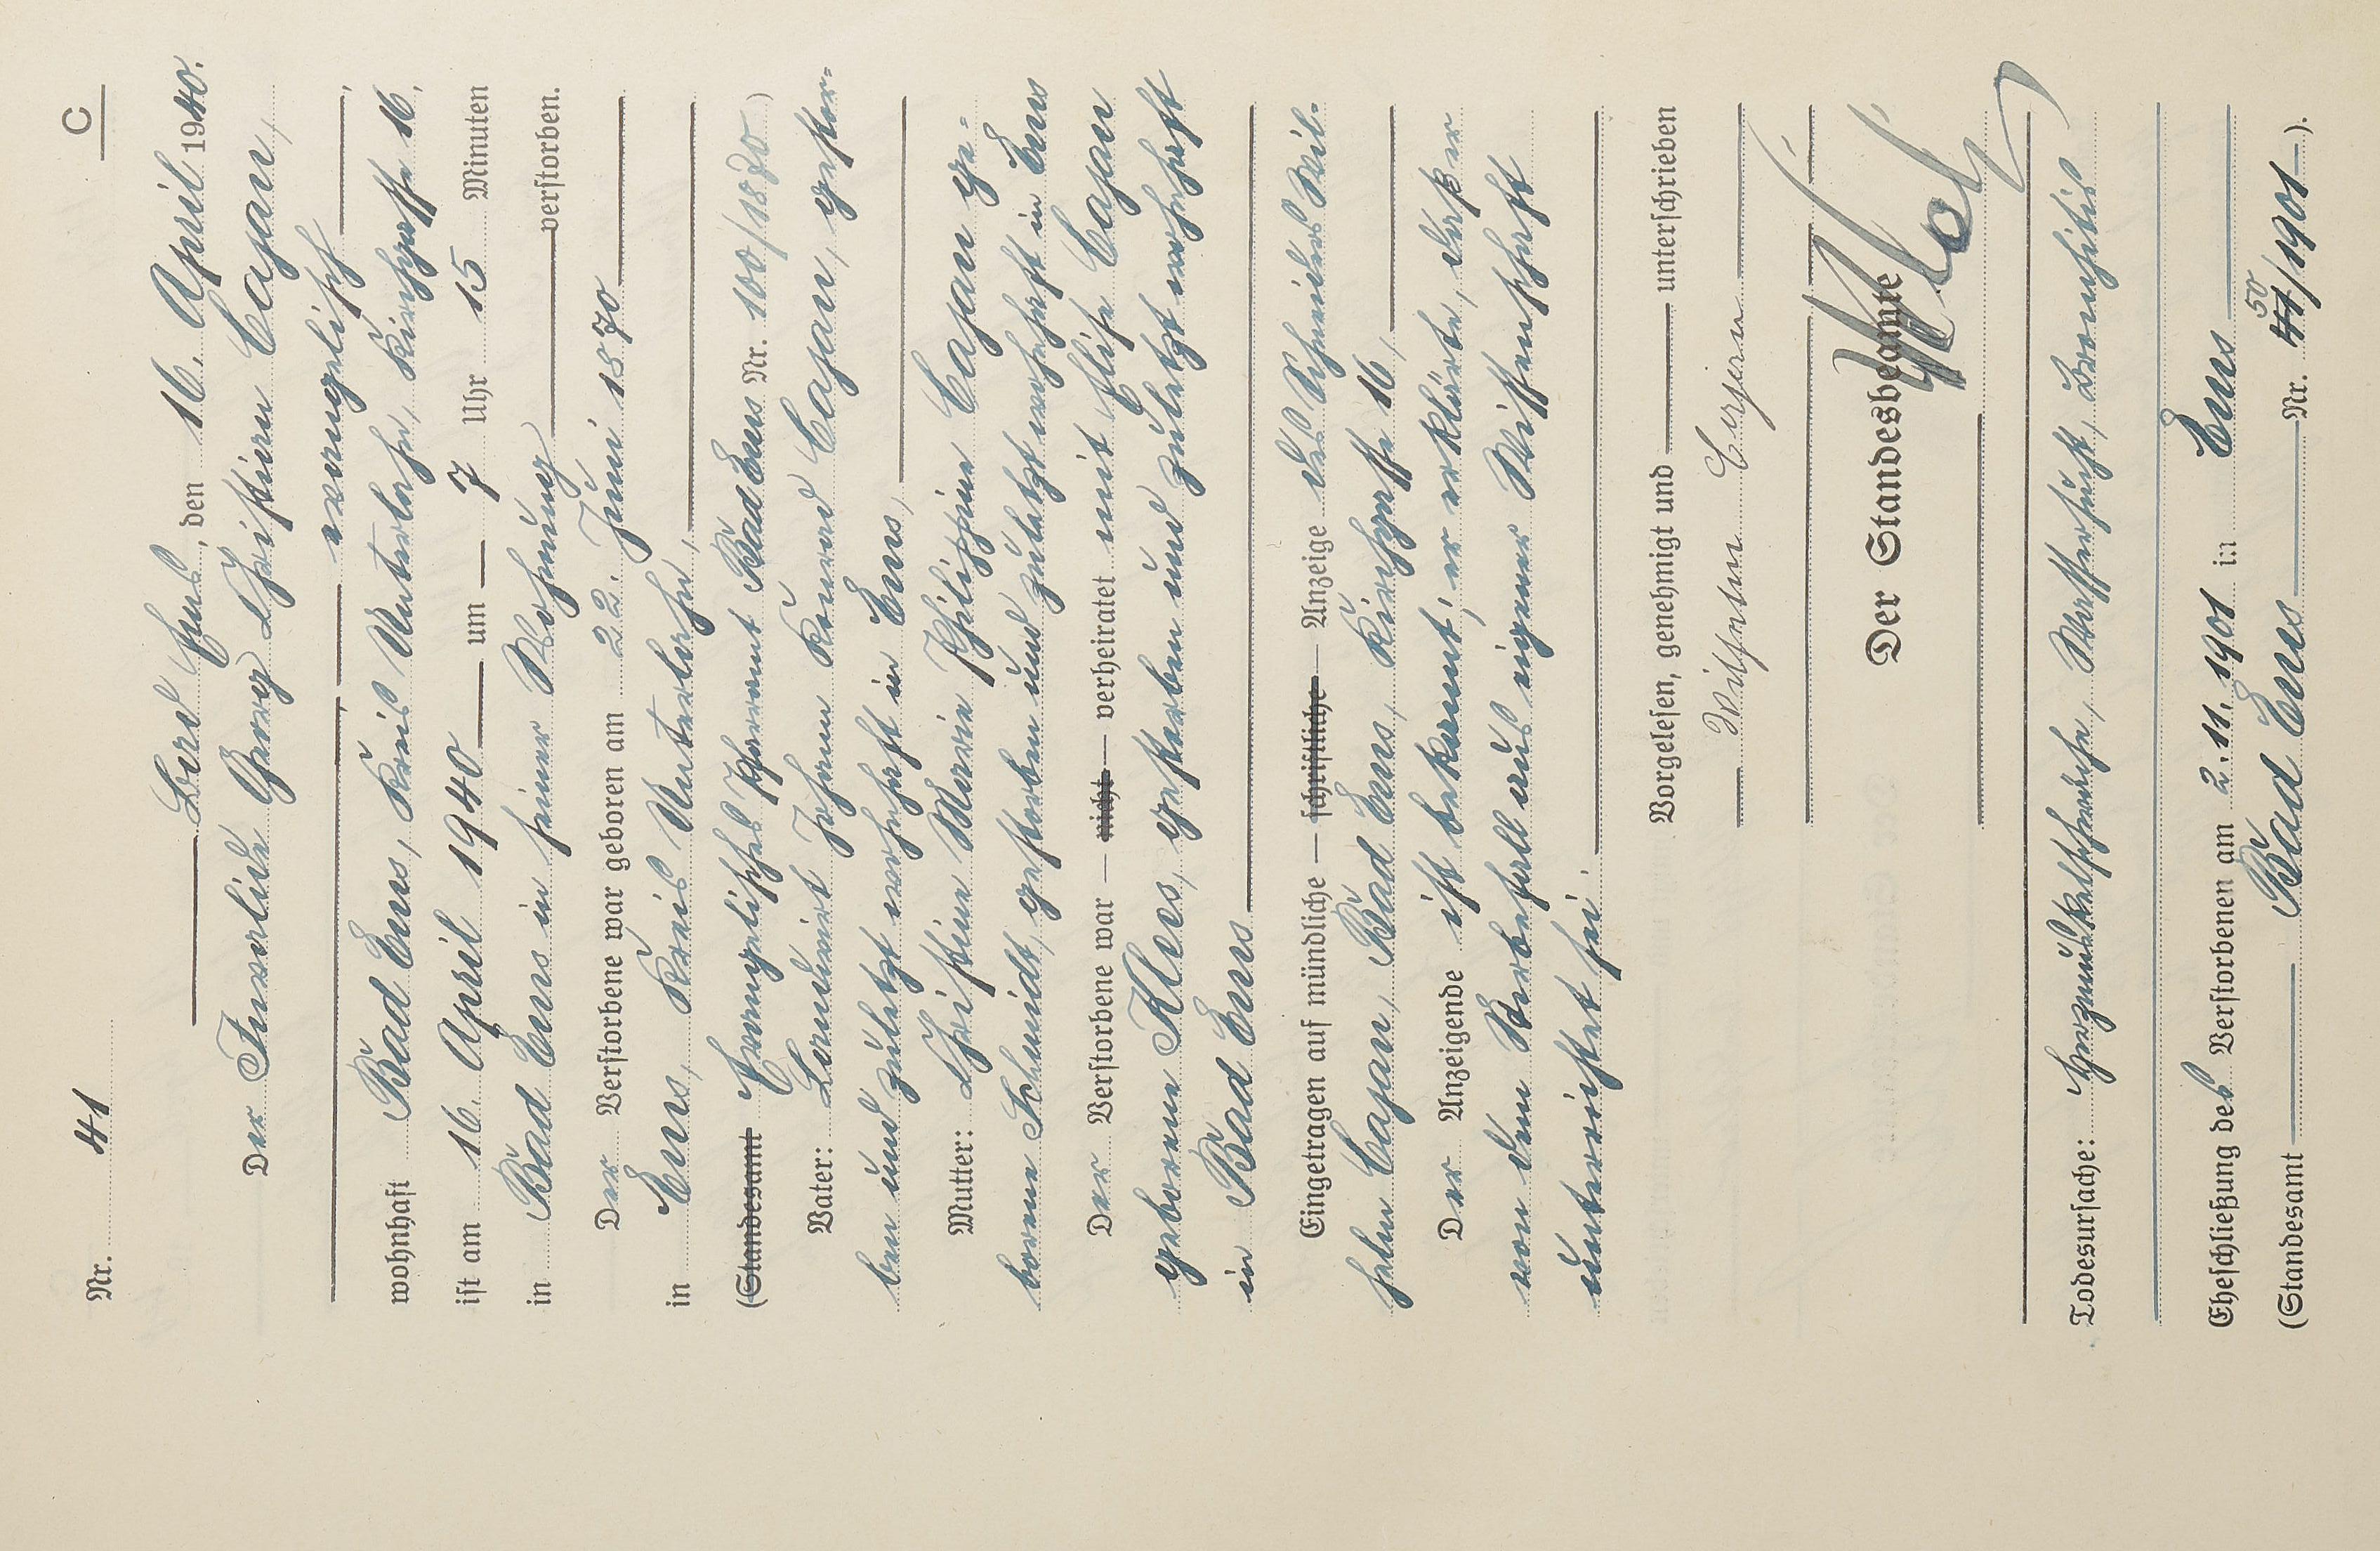 C
Nr. 41
Bad Ems, den 16. April 1940.
Der Invalide Georg Christian Cajan,
evangelisch
wohnhaft Bad Ems, Kreis Unterlahn, Kirchgasse 16,
ist am 16. April 1940 um 7 Uhr 15 Minuten
in Bad Ems in seiner Wohnung verstorben.
Der Verstorbene war geboren am 22. Juni 1870
in Ems, Kreis Unterlahn,
(Standesamt Evangelisches Pfarramt Bad Ems Nr. 100/1870)
Vater: Landwirt Johann Konrad Cajan, gestor-
ben und zuletzt wohnhaft in Ems,
Mutter: Christine Marie Philippine Cajan ge-
borene Schmidt, gestorben und zuletzt wohnhaft in Ems
Der Verstorbene war – nicht – verheiratet mit Elise Cajan
geborene Klees, gestorben und zuletzt wohnhaft
in Bad Ems
Eingetragen auf mündliche – schriftliche – Anzeige des Schneiders Wil-
helm Cajan, Bad Ems, Kirchgasse 16,
Der Anzeigende ist bekannt; er erklärte, daß er
von dem Sterbefall aus eigener Wissenschaft
unterrichtet sei.
Vorgelesen, genehmigt und unterschrieben
Wilhelm Cajan
Der Standesbeamte
Todesursache: Herzmuskelschwäche, Wassersucht, Bronchitis
Eheschließung des Verstorbenen am 2. 11. 1901 in Ems
(Standesamt Bad Ems Nr. 41 50/1901).